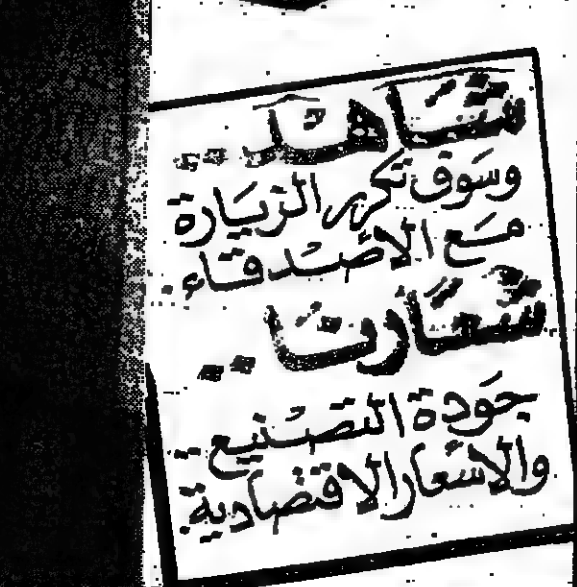 شاهد ..
وسوق تكرر الزيارة
مع الاصدقاء.
شعارنا ..
جودة التصنيع ..
والاسعار الاقتصادية.